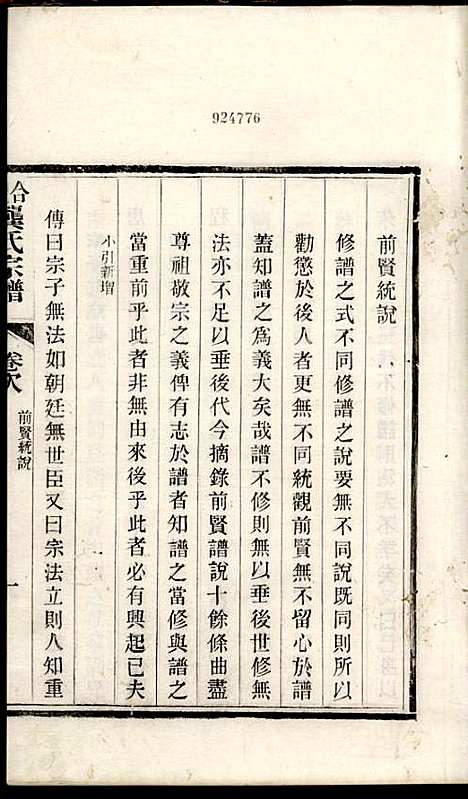 924776
前賢統說
修譜之式不同修譜之說要無不同說既同則所以
勸懲於後人者更無不同統觀前賢無不留心於譜
蓋知譜之爲義大矣哉譜不修則無以垂後世修無
法亦不足以垂後代今摘錄前賢譜說十餘條曲盡
尊祖敬宗之義俾有志於譜者知譜之當修與譜之
當重前乎此者非無由來後乎此者必有興起已夫
小引新增
傳曰宗子無法如朝廷無世臣又曰宗法立則人知重
龔氏宗譜
卷次
前賢統說
一